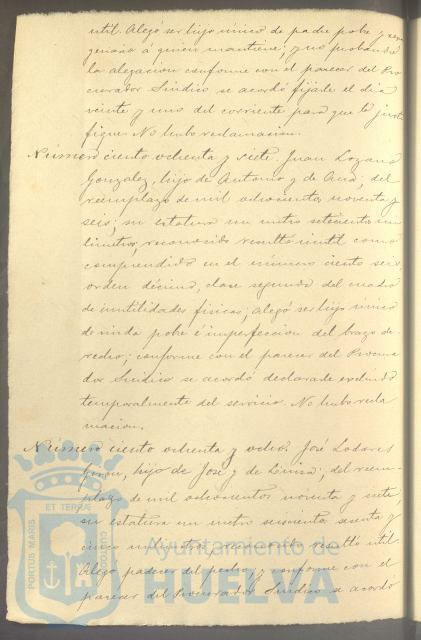 util. Alegó ser hijo único de padre pobre y sexa
genario á quien mantiene; y no probando
la alegacion conforme con el parecer del Pro
curador Sindico se acordó fijarle el dia
veinte y uno del corriente para que lo justi
fique. No hubo reclamacion.
Número ciento ochenta y siete. Juan Lozano
Gonzalez, hijo de Antonio y de Ana; del
reemplazo de mil ochocientos noventa y
seis; su estatura un metro setecientos
limetros, reconocido resultó inutil como
comprendido en el número ciento seis,
orden décimo, clase segunda del cuadro
de inutilidades fisicas; alegó ser hijo único
de viuda pobre é imperfeccion del brazo de-
recho; conforme con el parecer del Procura
dor Sindico se acordó declararle excluido
temporalmente del servicio. No hubo recla
macion.
Número ciento ochenta y ocho. José Lodares
hijo de José y de Luisa; del reem-
plazo de mil ochocientos noventa y siete,
su estatura un metro seiscientos sesenta y
cinco milimetros, reconocido resultó util.
Alegó padecer del pecho; y conforme con el
parecer del Procurador Sindico se acordó
PORTUS MARIS
ET TERRÆ
CUSTODIA
Ayuntamiento de
HUELVA